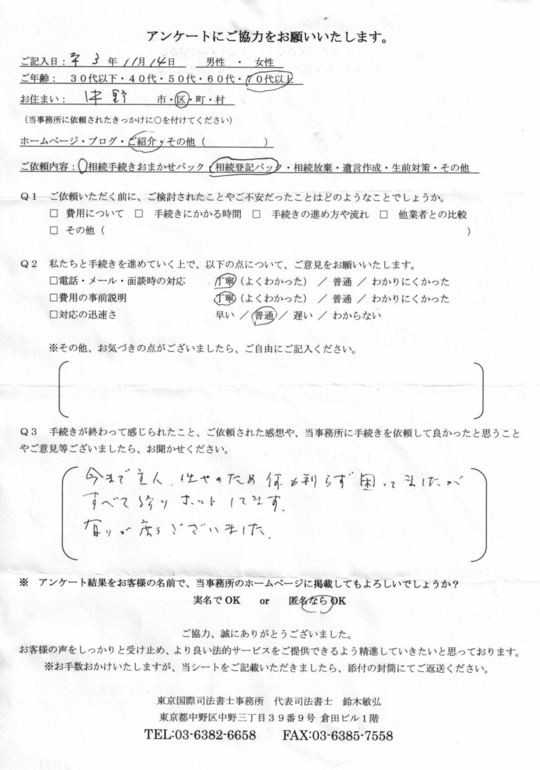 アンケートにご協力をお願いいたします。
ご記入日：平 3 年 11月 14日　男性 ・ 女性
ご年齢： 30代以下・40代・50代・60代・70代以上
お住まい： 中野 市・区・町・村
（当事務所に依頼されたきっかけに○を付けてください）
ホームページ・ブログ・ご紹介・その他（　　　）
ご依頼内容：相続手続きおまかせパック・相続登記パック・相続放棄・遺言作成・生前対策・その他
Q1 ご依頼いただく前に、ご検討されたことやご不安だったことはどのようなことでしょうか。
□ 費用について □ 手続きにかかる時間 □ 手続きの進め方や流れ □ 他業者との比較
□ その他（　　　）
Q2 私たちと手続きを進めていく上で、以下の点について、ご意見をお願いいたします。
□電話・メール・面談時の対応 丁寧（よくわかった） ／ 普通 ／ わかりにくかった
□費用の事前説明 丁寧（よくわかった） ／ 普通 ／ わかりにくかった
□対応の迅速さ 早い ／ 普通 ／ 遅い ／ わからない
※その他、お気づきの点がございましたら、ご自由にご記入ください。
Q3 手続きが終わって感じられたこと、ご依頼された感想や、当事務所に手続きを依頼して良かったと思うこと
やご意見等ございましたら、お聞かせください。
今まで主人 のため何も判らず困ってましたが
すべて終り ホットしてます
有りが度うございました
※ アンケート結果をお客様の名前で、当事務所のホームページに掲載してもよろしいでしょうか？
実名でOK or 匿名ならOK
ご協力、誠にありがとうございました。
お客様の声をしっかりと受け止め、より良い法的サービスをご提供できるよう精進していきたいと思っております。
※お手数おかけいたしますが、当シートをご記載いただきましたら、添付の封筒にてご返送ください。
東京国際司法書士事務所 代表司法書士 鈴木敏弘
東京都中野区中野三丁目39番9号 倉田ビル1階
TEL:03-6382-6658 FAX:03-6385-7558